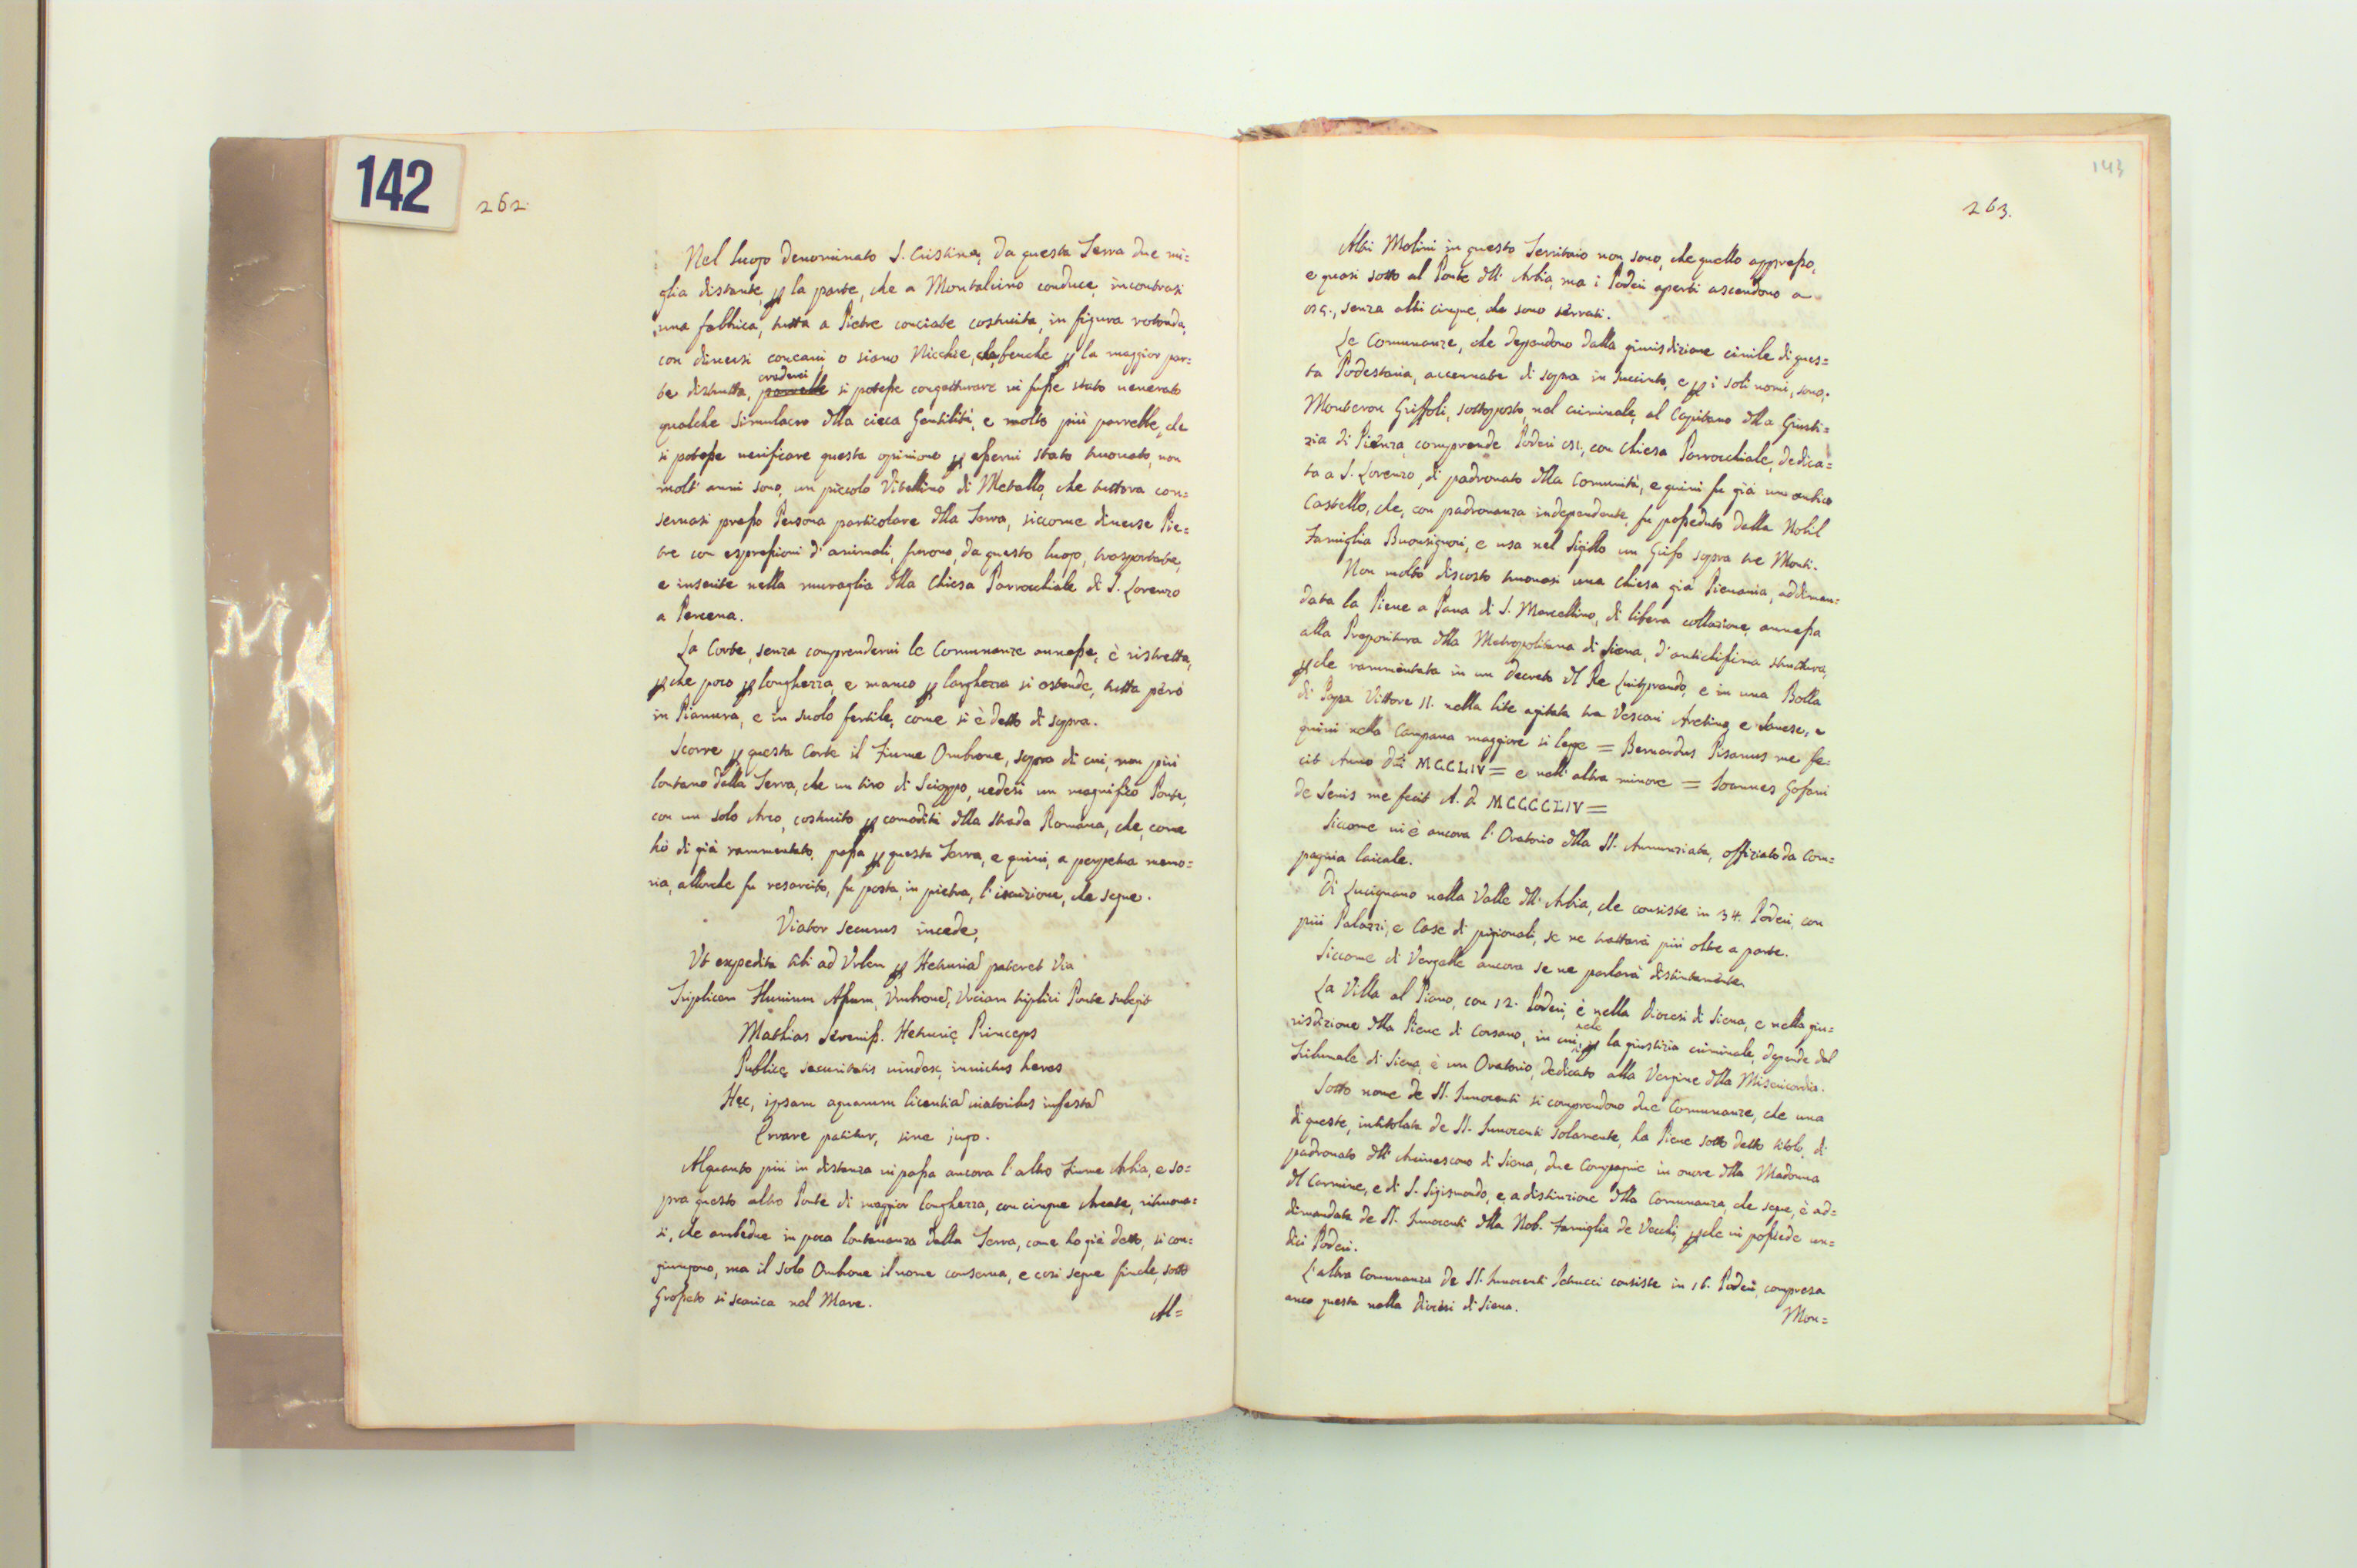 142
262.
Nel luogo denominato S. Cristina, da questa Terra due mi=
glia distante, p la parte, che a Montalcino conduce, incontrasi
una fabbrica, tutta a Pietre conciate costruita, in figura rotonda,
con diversi concavi, o siano Nicchie, che, benche p la maggior par=
te distrutta, crederei si potesse congetturare vi fusse stato venerato
qualche Simulacro dlla cieca Gentilità, e molto più parrebbe, che
si potesse verificare questa opinione p esservi stato truovato, non
molti anni sono, un piccolo Vitellino di Metallo, che tuttora con=
servasi presso Persona particolare dlla Terra, siccome diverse Pie=
tre con espressioni d'animali, furono, da questo luogo, trasportate,
e inserite nella muraglia dlla Chiesa Parrocchiale di S. Lorenzo
a Percena.
La Corte, senza comprendervi le Comunanze annesse, è ristretta,
pche poco p longhezza, e manco p larghezza si estende, tutta però
in Pianura, e in suolo fertile, come si è detto di sopra.
Scorre p questa Corte il Fiume Ombrone, sopra di cui, non più
lontano dalla Terra, che un tiro di Scioppo, vedesi un magnifico Ponte,
con un solo Arco, costruito p comodità dlla strada Romana, che, come
hò di già rammentato, passa p questa Terra, e quivi, a perpetua memo=
ria, allorche fu resarcito, fu posta, in pietra, l'iscrizione, che segue.
Viator securus incede,
Vt expedita tibi ad Vrbem p Hetruria pateret via
Triplicem Fluvium Assum, Vmbrone, Vrciam triplici Ponte subegit
Mathias Sereniss. Hetrurię Princeps
Publicę securitatis vindex, invictus heros
Hęc, ipsam aquarum licentia viatoribus infesta
Errare patitur, sine jugo.
Alquanto più in distanza vi passa ancora l'altro Fiume Arbia, e so=
pra questo altro Ponte di maggior longhezza, con cinque Arcate, ritruova=
si, che ambedue in poca lontananza dalla Terra, come ho già detto, si con=
giungono, ma il solo Ombrone il nome conserva, e così segue finche, sotto
Grosseto si scarica nel Mare.
Al=
143
263.
Altri Molini in questo Territorio non sono, che quello appresso,
e quasi sotto al Ponte dll' Arbia, ma i Poderi aperti ascendono a
senza altri cinque, che sono serrati.
Le Comunanze, che dependono dalla giurisdizione civile di ques=
ta Podestaria, accennate di sopra in succinto, e p i soli nomi, sono.
Monteron Griffoli, sottoposto, nel criminale, al Capitano dlla Giusti=
zia di Pienza, comprende Poderi con Chiesa Parrocchiale, dedica=
ta a S. Lorenzo, di padronato dlla Comunità, e quivi fu già un antico
Castello, che, con padronanza independente, fu posseduto dalla Nobil
Famiglia Buonsignori, e usa nel Sigillo un Grifo sopra tre Monti.
Non molto discosto truovasi una Chiesa già Pievania, addiman=
data la Pieve a Pava di S. Marcellino, di libera collazione, annessa
alla Prepositura dlla Metropolitana di Siena, d'antichissima struttura,
pche rammentata in un Decreto dl Re Luitprando, e in una Bolla
di Papa Vittore II. nella lite agitata tra Vescovi Aretino, e Sanese, e
quivi nella Campana maggiore si legge = Bernardus Pisanus me fe=
cit Anno Dñi MCCLIV = e nell'altra minore = Ioannes Gofani
de Senis me fecit A. D MCCCCLIV =
Siccome vi è ancora l'Oratorio dlla SS. Annunziata, offiziato da Com=
pagnia laicale.
Di Lucignano nella Valle dll' Arbia, che consiste in 34. Poderi, con
più Palazzi, e Case di pigionali, se ne trattarà più oltre a parte.
Siccome di Vergelle ancora se ne parlarà distintamente.
La Villa al Piano, con 12. Poderi, è nella Diocesi di Siena, e nella giu=
risdizione dlla Pieve di Corsano, in cui, la giustizia criminale, depende dal
Tribunale di Siena, è un Oratorio, dedicato alla Vergine dlla Misericordia.
Sotto nome de SS. Innocenti si comprendono due Comunanze, che una
di queste, intitolata de SS. Innocenti solamente, ha Pieve sotto detto titolo, di
padronato dll' Arcivescovo di Siena, due Compagnie in onore dlla Madonna
dl Carmine, e di S. Sigismondo, e, a distinzione dlla Comunanza, che segue, è ad=
dimandata de SS. Innocenti dlla Nob. Famiglia de Vecchi, pche vi possiede un=
dici Poderi.
L'altra Comunanza de SS. Innocenti Petrucci consiste in 16. Poderi, compresa
anco questa nella Diocesi di Siena.
Mon=